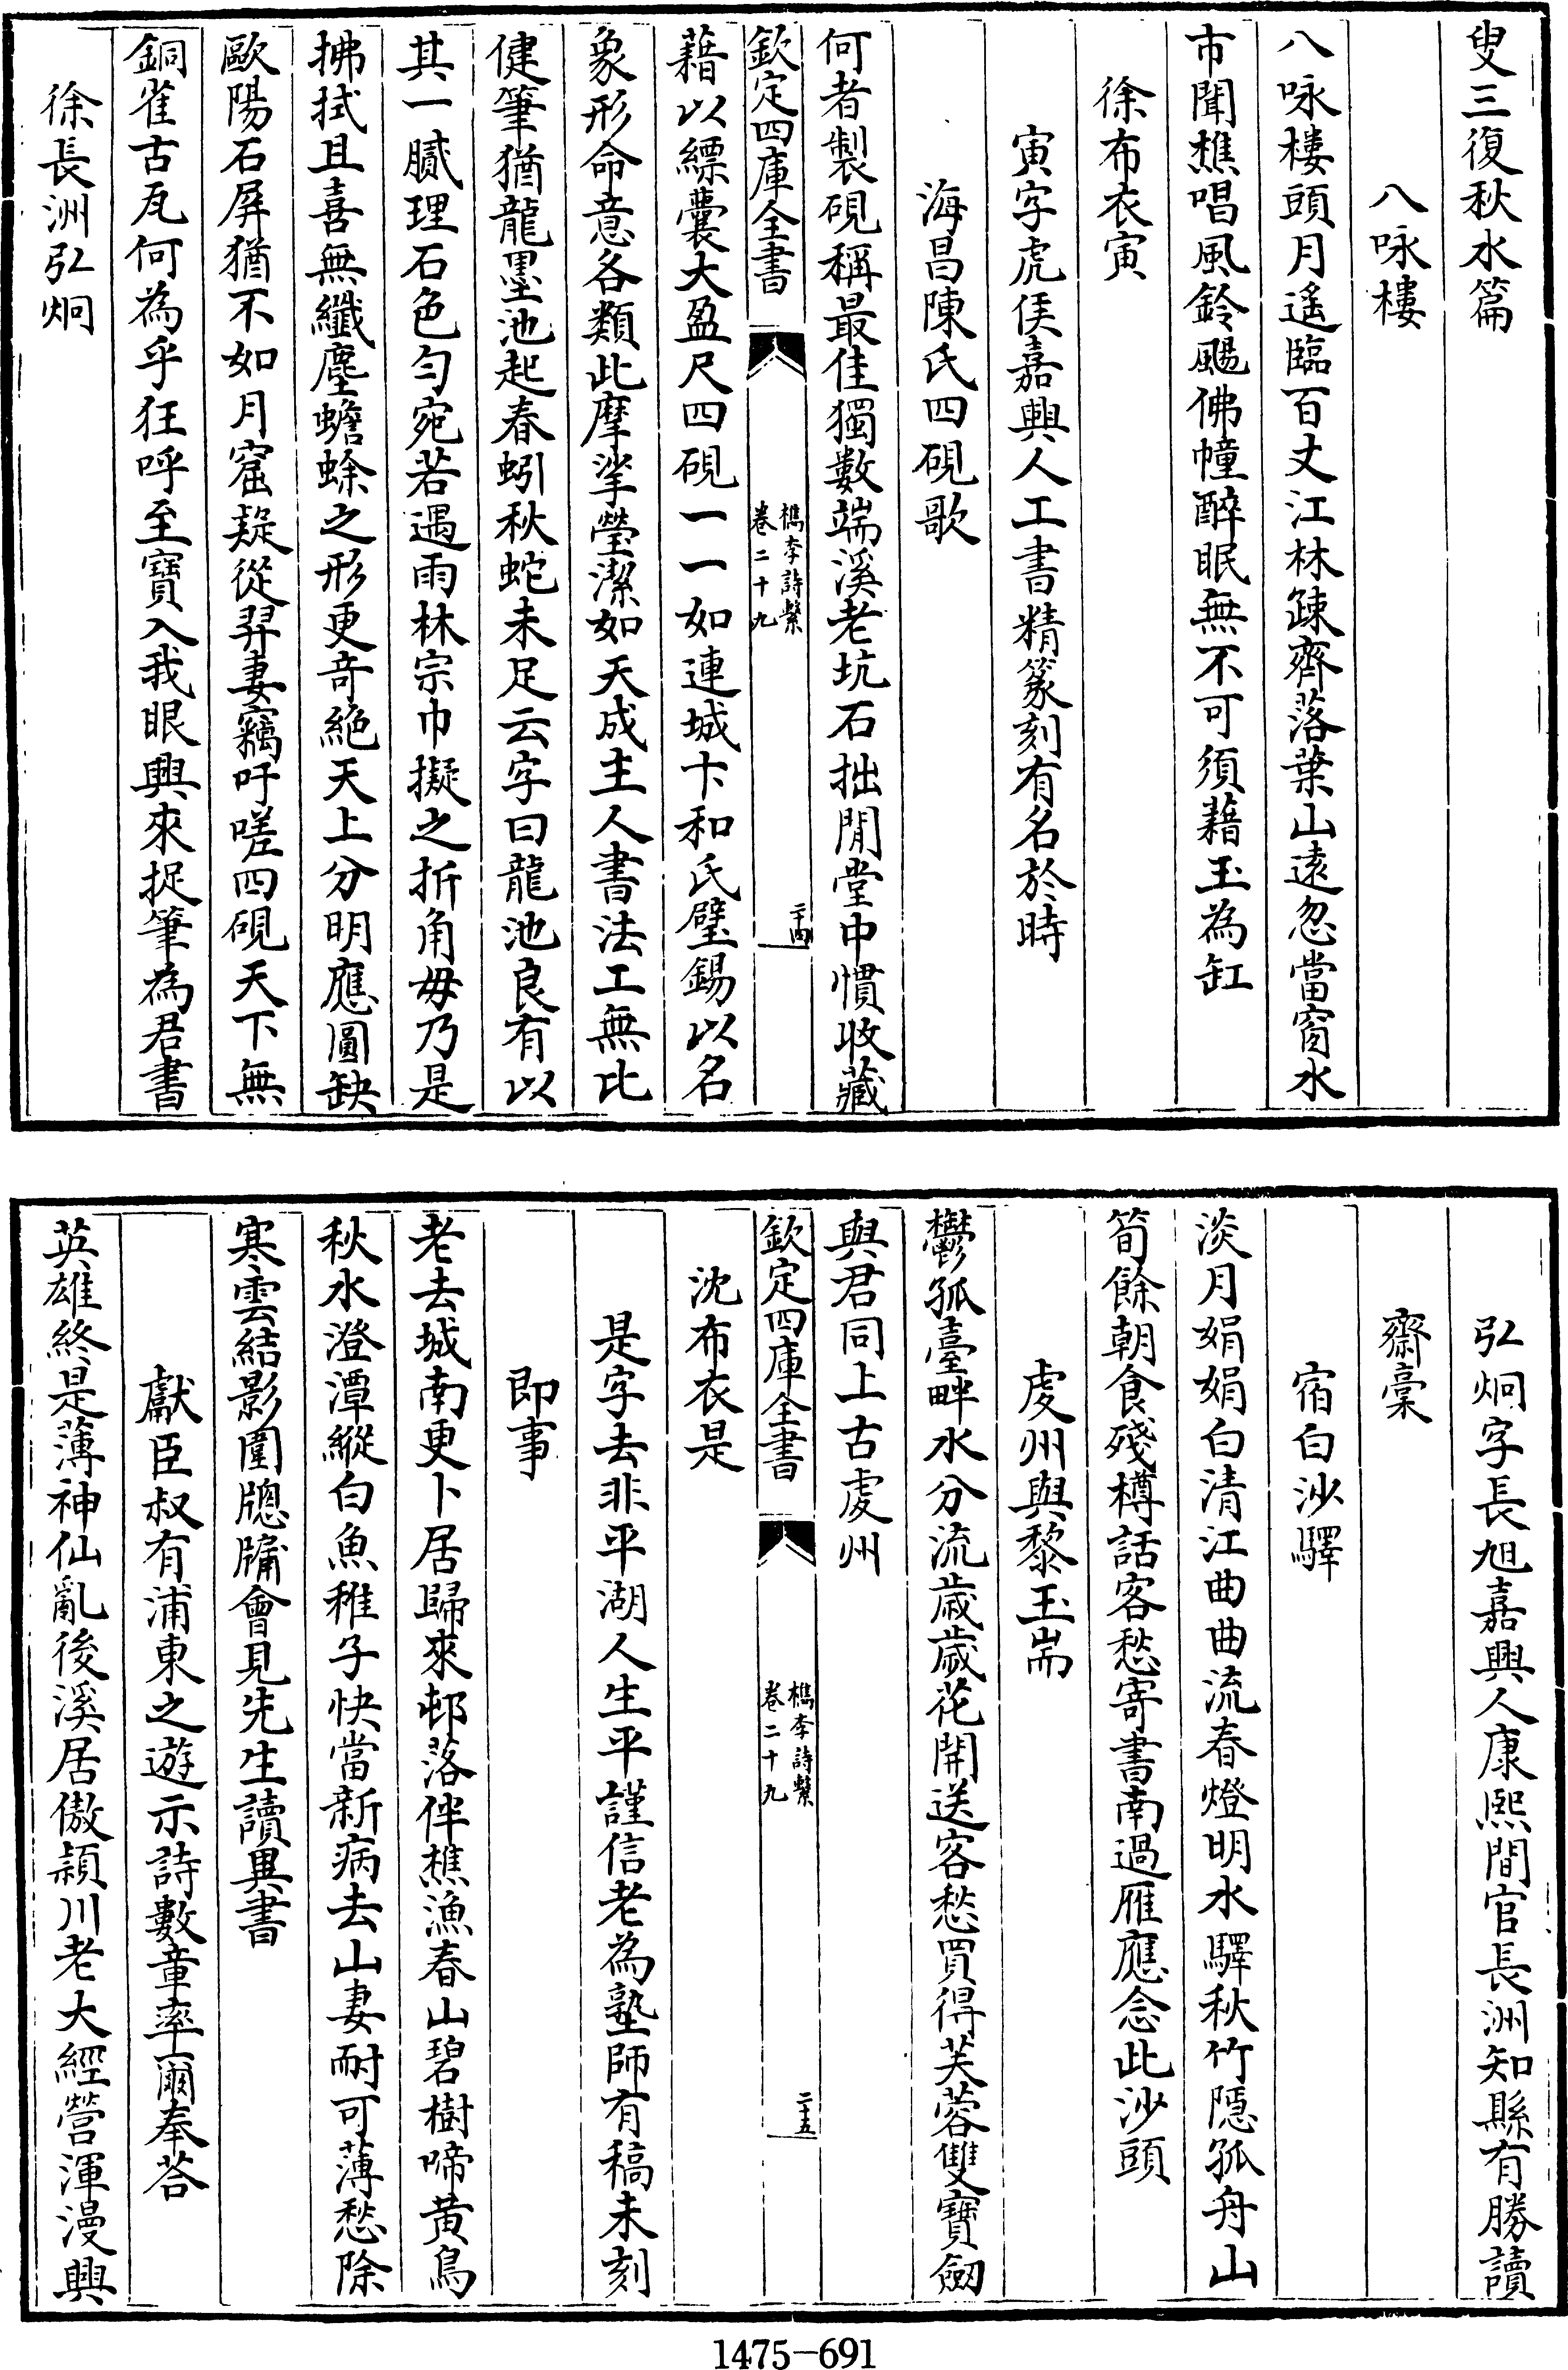 叟三復秋水篇
八咏樓
八咏樓頭月遙臨百丈江林疎齊落葉山遠忽當窗水
市聞樵唱風鈴颺佛幢醉眠無不可須藉玉為缸
徐布衣寅
寅字虎侯嘉興人工書精篆刻有名於時
海昌陳氏四硯歌
何者製硯稱最佳獨數端溪老坑石拙閒堂中慣收藏
欽定四庫全書
檇李詩繫
卷二十九
二十四
藉以縹囊大盈尺四硯一一如連城卞和氏璧錫以名
象形命意各類此摩挲瑩潔如天成主人書法工無比
健筆猶龍墨池起春蚓秋蛇未足云字曰龍池良有以
其一膩理石色勻宛若遇雨林宗巾擬之折角毋乃是
拂拭且喜無纖塵蟾蜍之形更奇絶天上分明應圓缺
歐陽石屏猶不如月窟疑從羿妻竊吁嗟四硯天下無
銅雀古瓦何為乎狂呼至寶入我眼興來捉筆為君書
徐長洲弘炯
弘炯字長旭嘉興人康熙間官長洲知縣有勝讀
齋稾
宿白沙驛
淡月娟娟白清江曲曲流春燈明水驛秋竹隱孤舟山
筍餘朝食殘樽話客愁寄書南過雁應念此沙頭
虔州與黎玉耑
鬱孤臺畔水分流歲歲花開送客愁買得芙蓉雙寶劒
與君同上古虔州
欽定四庫全書
檇李詩繫
卷二十九
二十五
沈布衣是
是字去非平湖人生平謹信老為塾師有稿未刻
即事
老去城南更卜居歸來邨落伴樵漁春山碧樹啼黄鳥
秋水澄潭縱白魚稚子快當新病去山妻耐可薄愁除
寒雲結影圍牕牖會見先生讀異書
獻臣叔有浦東之遊示詩數章率爾奉荅
英雄終是薄神仙亂後溪居傲潁川老大經營渾漫興
1475-691